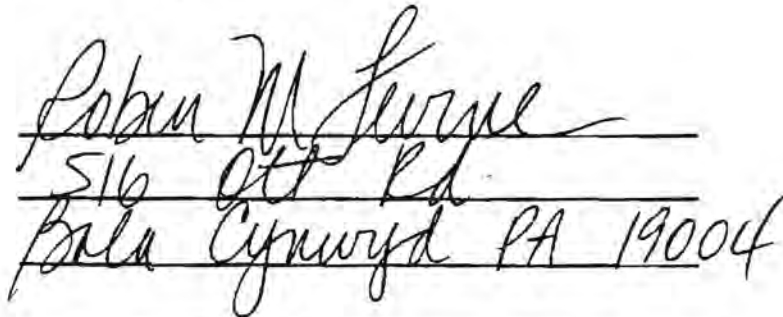 Robin M Levine
516 Ott Rd
Bala Cynwyd PA 19004